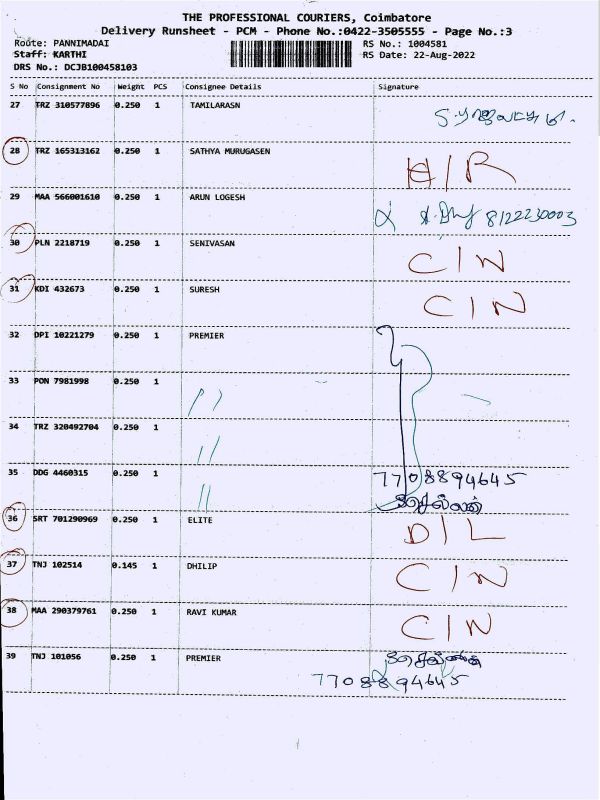 THE PROFESSIONAL COURIERS, Coimbatore
Delivery Runsheet - PCM - Phone No.:0422-3505555 - Page No.:3
Route: PANNIMADAI RS No.: 1004581
Staff: KARTHI RS Date: 22-Aug-2022
DRS No.: DCJB100458103
S No Consignment No Weight PCS Consignee Details Signature
27 TRZ 310577896 0.250 1 TAMILARASN
28 TRZ 165313162 0.250 1 SATHYA MURUGASEN H/R
29 MAA 566001610 0.250 1 ARUN LOGESH 8122230003
30 PLN 2218719 0.250 1 SENIVASAN C/N
31 KDI 432673 0.250 1 SURESH C/N
32 DPI 10221279 0.250 1 PREMIER
33 PON 7981998 0.250 1 //
34 TRZ 320492704 0.250 1 //
35 DDG 4460315 0.250 1 // 7708894645
36 SRT 701290969 0.250 1 ELITE D/L
37 TNJ 102514 0.145 1 DHILIP C/N
38 MAA 290379761 0.250 1 RAVI KUMAR C/N
39 TNJ 101056 0.250 1 PREMIER
7708894645